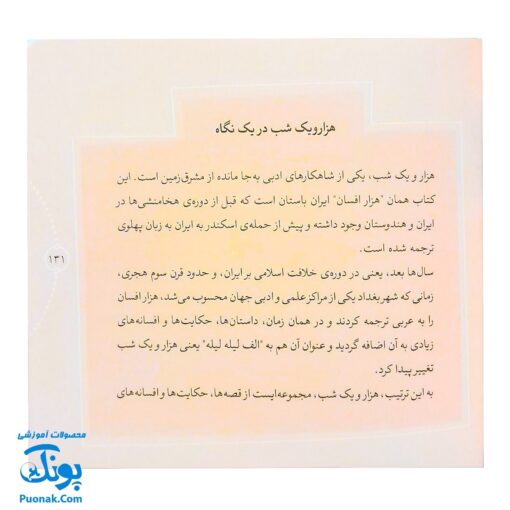 هزارویک شب در یک نگاه
هزار و یک شب، یکی از شاهکارهای ادبی به‌جا مانده از مشرق‌زمین است. این
کتاب همان "هزار افسان" ایران باستان است که قبل از دوره‌ی هخامنشی‌ها در
ایران و هندوستان وجود داشته و پیش از حمله‌ی اسکندر به ایران به زبان پهلوی
ترجمه شده است.
سال‌ها بعد، یعنی در دوره‌ی خلافت اسلامی بر ایران، و حدود قرن سوم هجری،
زمانی که شهر بغداد یکی از مراکز علمی و ادبی جهان محسوب می‌شد، هزار افسان
را به عربی ترجمه کردند و در همان زمان، داستان‌ها، حکایت‌ها و افسانه‌های
زیادی به آن اضافه گردید و عنوان آن هم به "الف لیله لیله" یعنی هزار و یک شب
تغییر پیدا کرد.
به این ترتیب، هزار و یک شب، مجموعه‌ایست از قصه‌ها، حکایت‌ها و افسانه‌های
۱۳۱
محصولات آموزشی
پونک
Puonak.Com